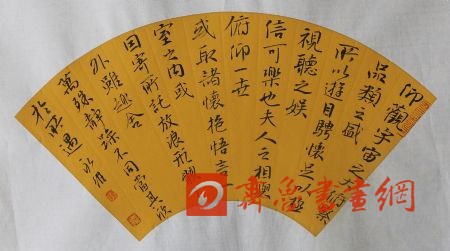 仰觀宇宙之大俯察
品類之盛
所以遊目騁懷足以極
視聽之娛
信可樂也夫人之相與
俯仰一世
或取諸懷抱悟言一
室之内或
因寄所託放浪形骸之
外雖趣舍
萬殊靜躁不同當其欣
於所遇
齊魯書畫網